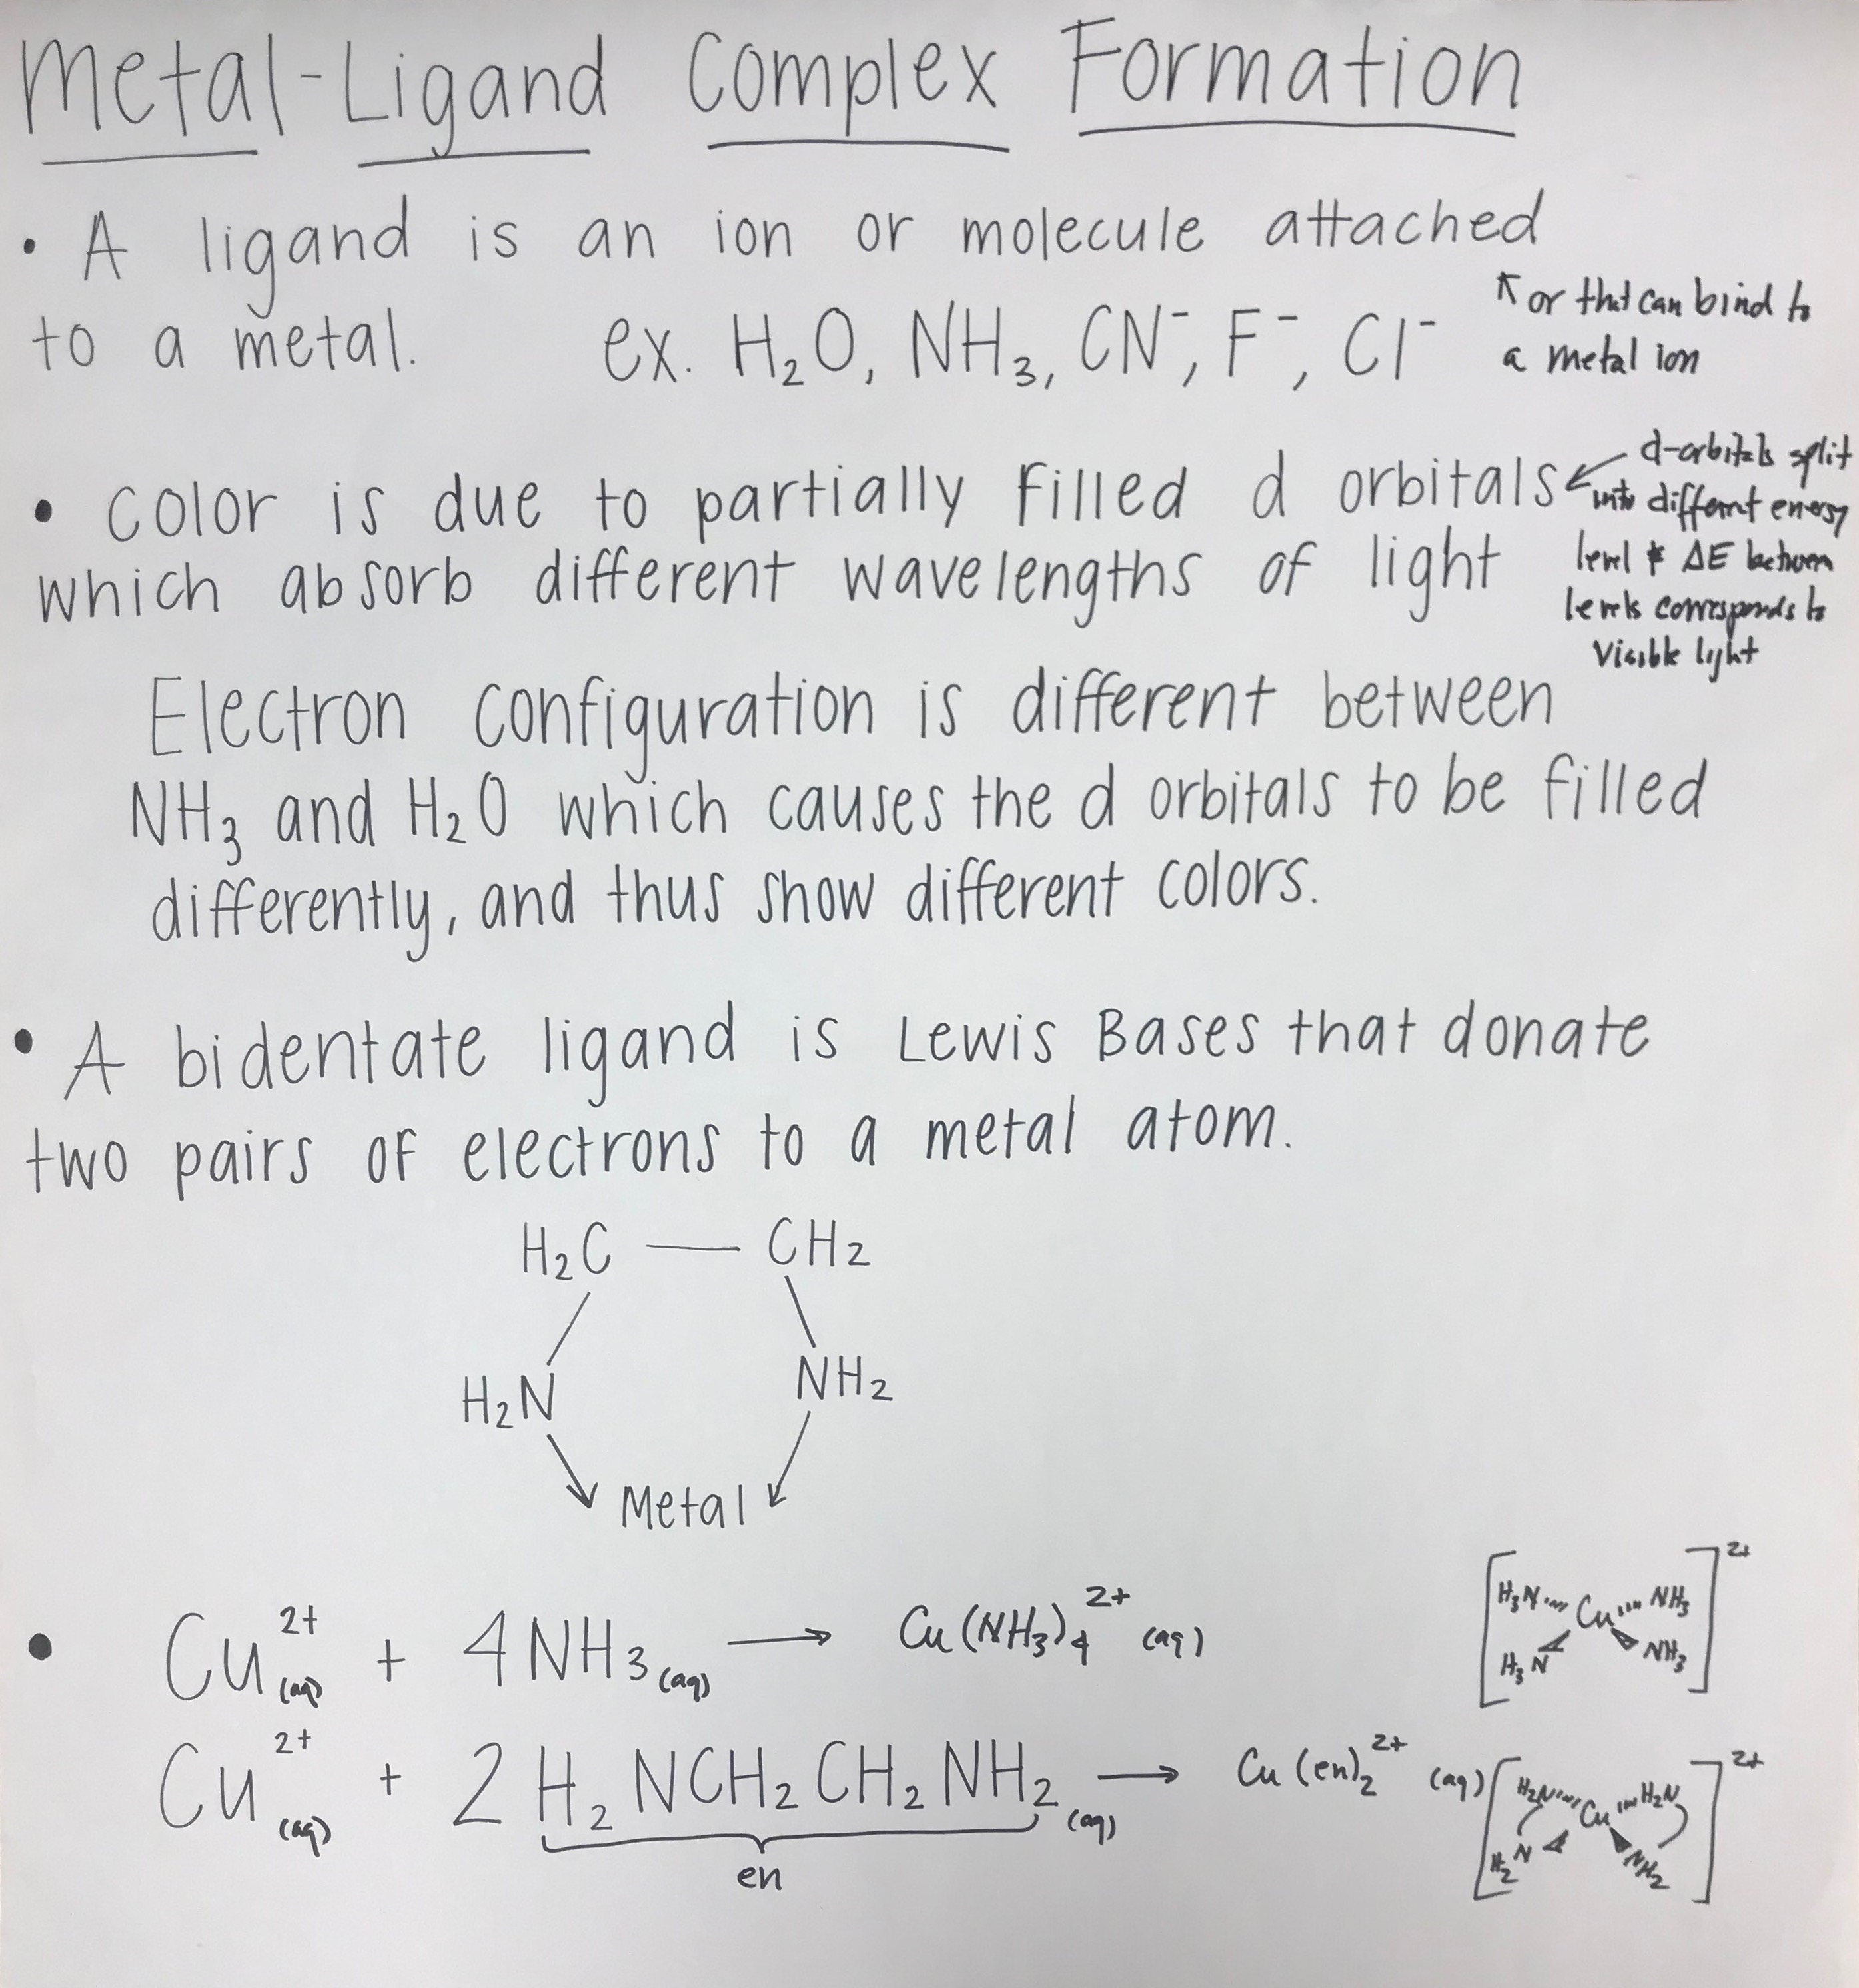 Metal-Ligand Complex Formation
• A ligand is an ion or molecule attached
to a metal. ex. H₂O, NH₃, CN⁻, F⁻, Cl⁻
↖ or that can bind to
a metal ion
• Color is due to partially filled d orbitals
which absorb different wavelengths of light
↙ d-orbitals split
into different energy
level & ΔE between
levels corresponds to
visible light
Electron configuration is different between
NH₃ and H₂O which causes the d orbitals to be filled
differently, and thus show different colors.
• A bidentate ligand is Lewis Bases that donate
two pairs of electrons to a metal atom.
H₂C — CH₂
H₂N NH₂
Metal
• Cu²⁺(aq) + 4NH₃(aq) → Cu(NH₃)₄²⁺ (aq)
[H₃N Cu NH₃
H₃N NH₃]²⁺
Cu²⁺(aq) + 2H₂NCH₂CH₂NH₂(aq) → Cu(en)₂²⁺ (aq)
en
[H₂N Cu H₂N
H₂N NH₂]²⁺